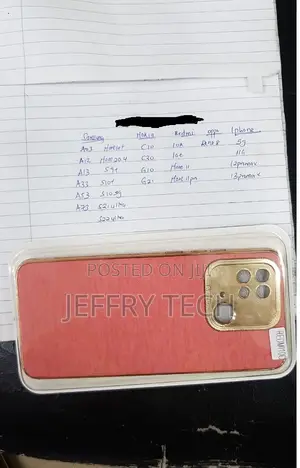 Samsung Nokia Redmi oppo Iphone
A03 Hot10t C10 10A Reno 8 5g
A12 Hot20.4 C30 10c 11G
A13 S9+ G10 Note 11 12promax
A33 S10+ G21 Note 11pro 13promax
A53 S10 5g
A73 S21 ultra
S22 ultra
POSTED ON JIJI
JEFFRY TECH
REDMI10C